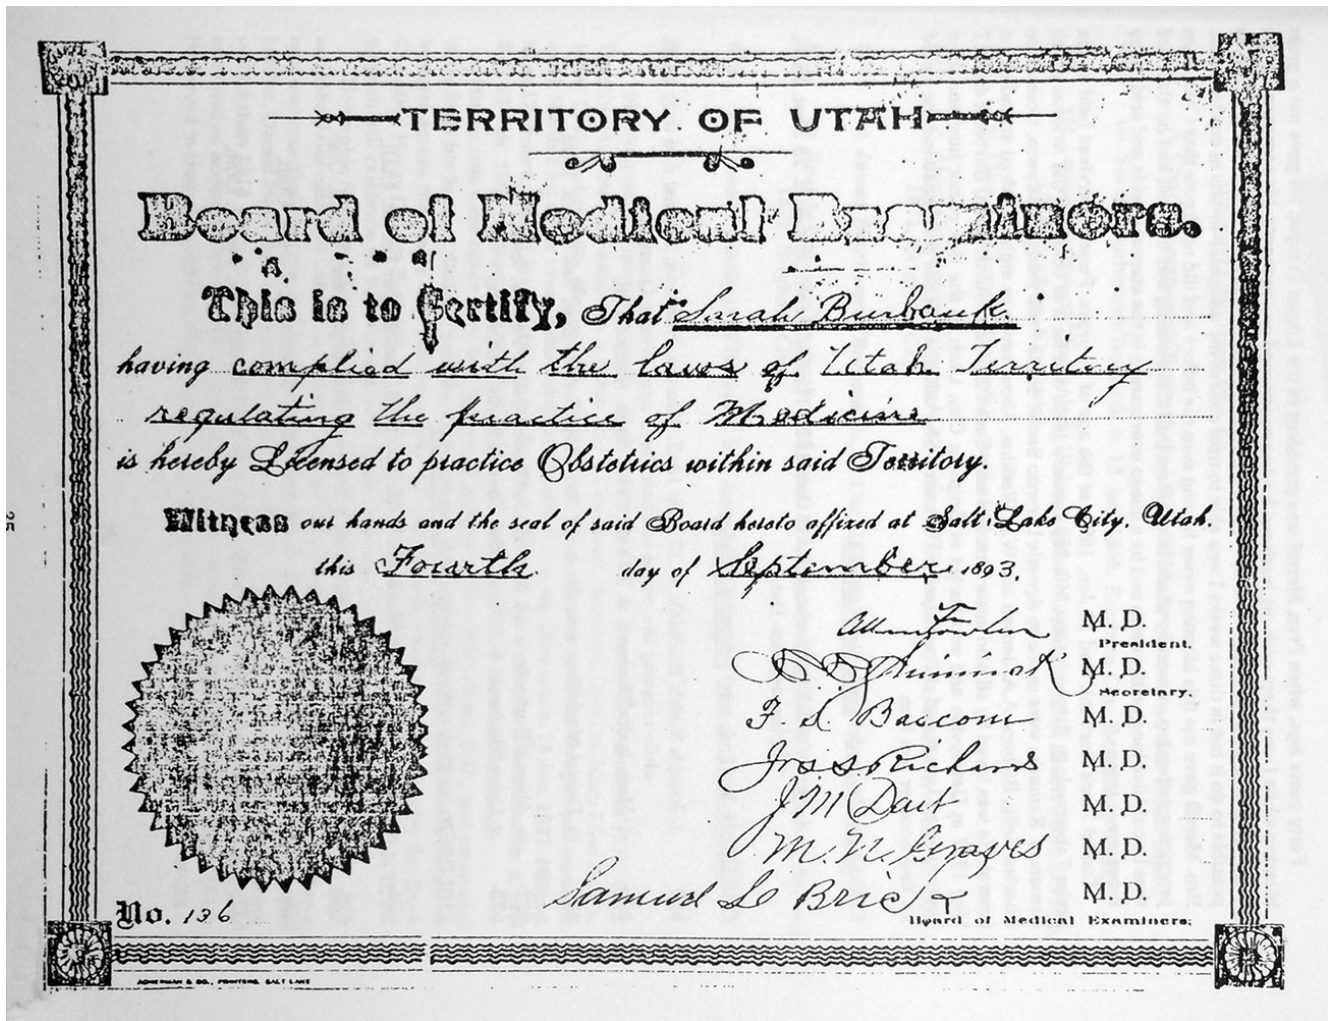 TERRITORY OF UTAH
Board of Medical Examiners.
This is to Certify, That Sarah Burbank
having complied with the laws of Utah Territory
regulating the practice of Medicine
is hereby Licensed to practice Obstetrics within said Territory.
Witness our hands and the seal of said Board hereto affixed at Salt Lake City, Utah.
this Fourth day of September 1893.
Allen Fowler M. D.
President.
M. D.
Secretary.
F. S. Bascom M. D.
Jos S Richards M. D.
J M Dart M. D.
M. N. Graves M. D.
Samuel M. D.
No. 136
Board of Medical Examiners.
ACKERMAN & CO., PRINTERS, SALT LAKE
25